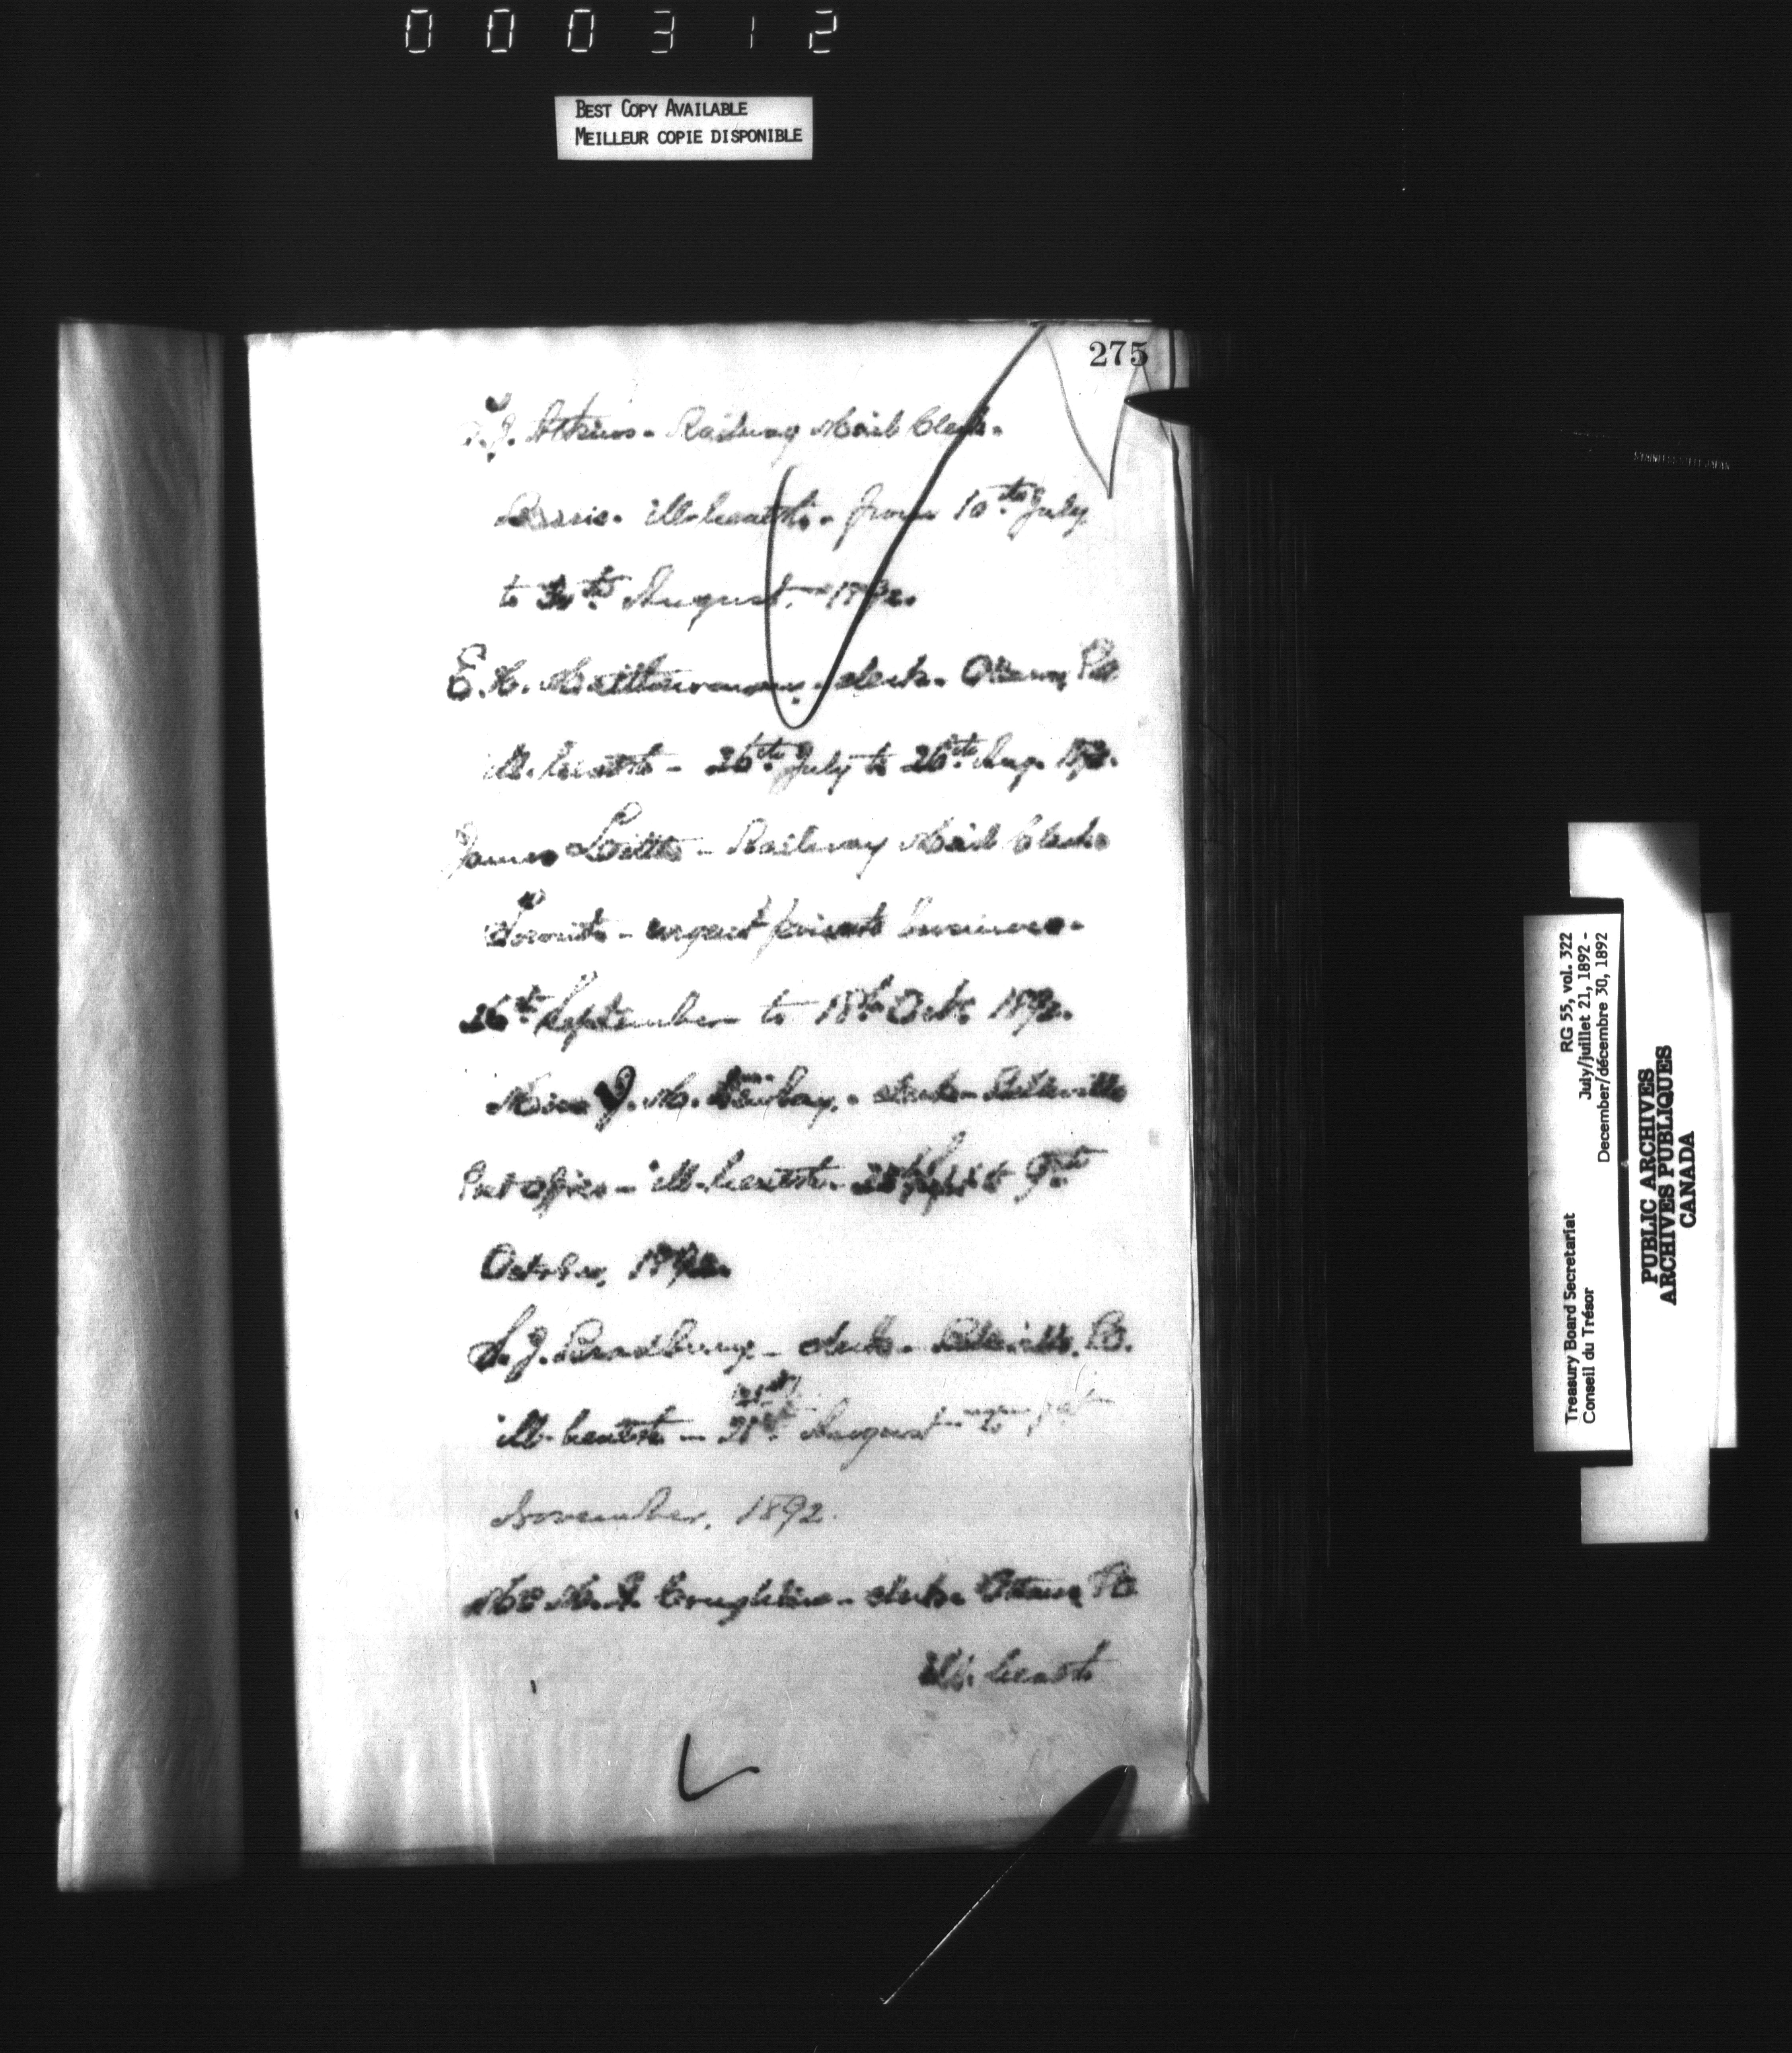 000312
BEST COPY AVAILABLE
MEILLEUR COPIE DISPONIBLE
275
J. Atkins - Railway Mail Clerk -
ill-health - from 10th July
to 30th August, 1892.
E. H. - clerk - Ottawa, P.O.
ill-health - 26th July to 26th Aug. 1892.
James Little - Railway Mail Clerk
Toronto - urgent private business -
26th September to 18th Oct. 1892.
Miss J. M. - clerk - Belleville
Post Office - ill-health - Sept. to 9th
October, 1892.
S. J. Bradbury - clerk - Belleville, P.O.
ill-health - 21st August to 1st
November, 1892.
M. J. Coughlin - clerk - Ottawa P.O.
ill-health
STAINLESS STEEL JAPAN
Treasury Board Secretariat
Conseil du Trésor
RG 55, vol. 322
July/juillet 21, 1892 -
December/décembre 30, 1892
PUBLIC ARCHIVES
ARCHIVES PUBLIQUES
CANADA